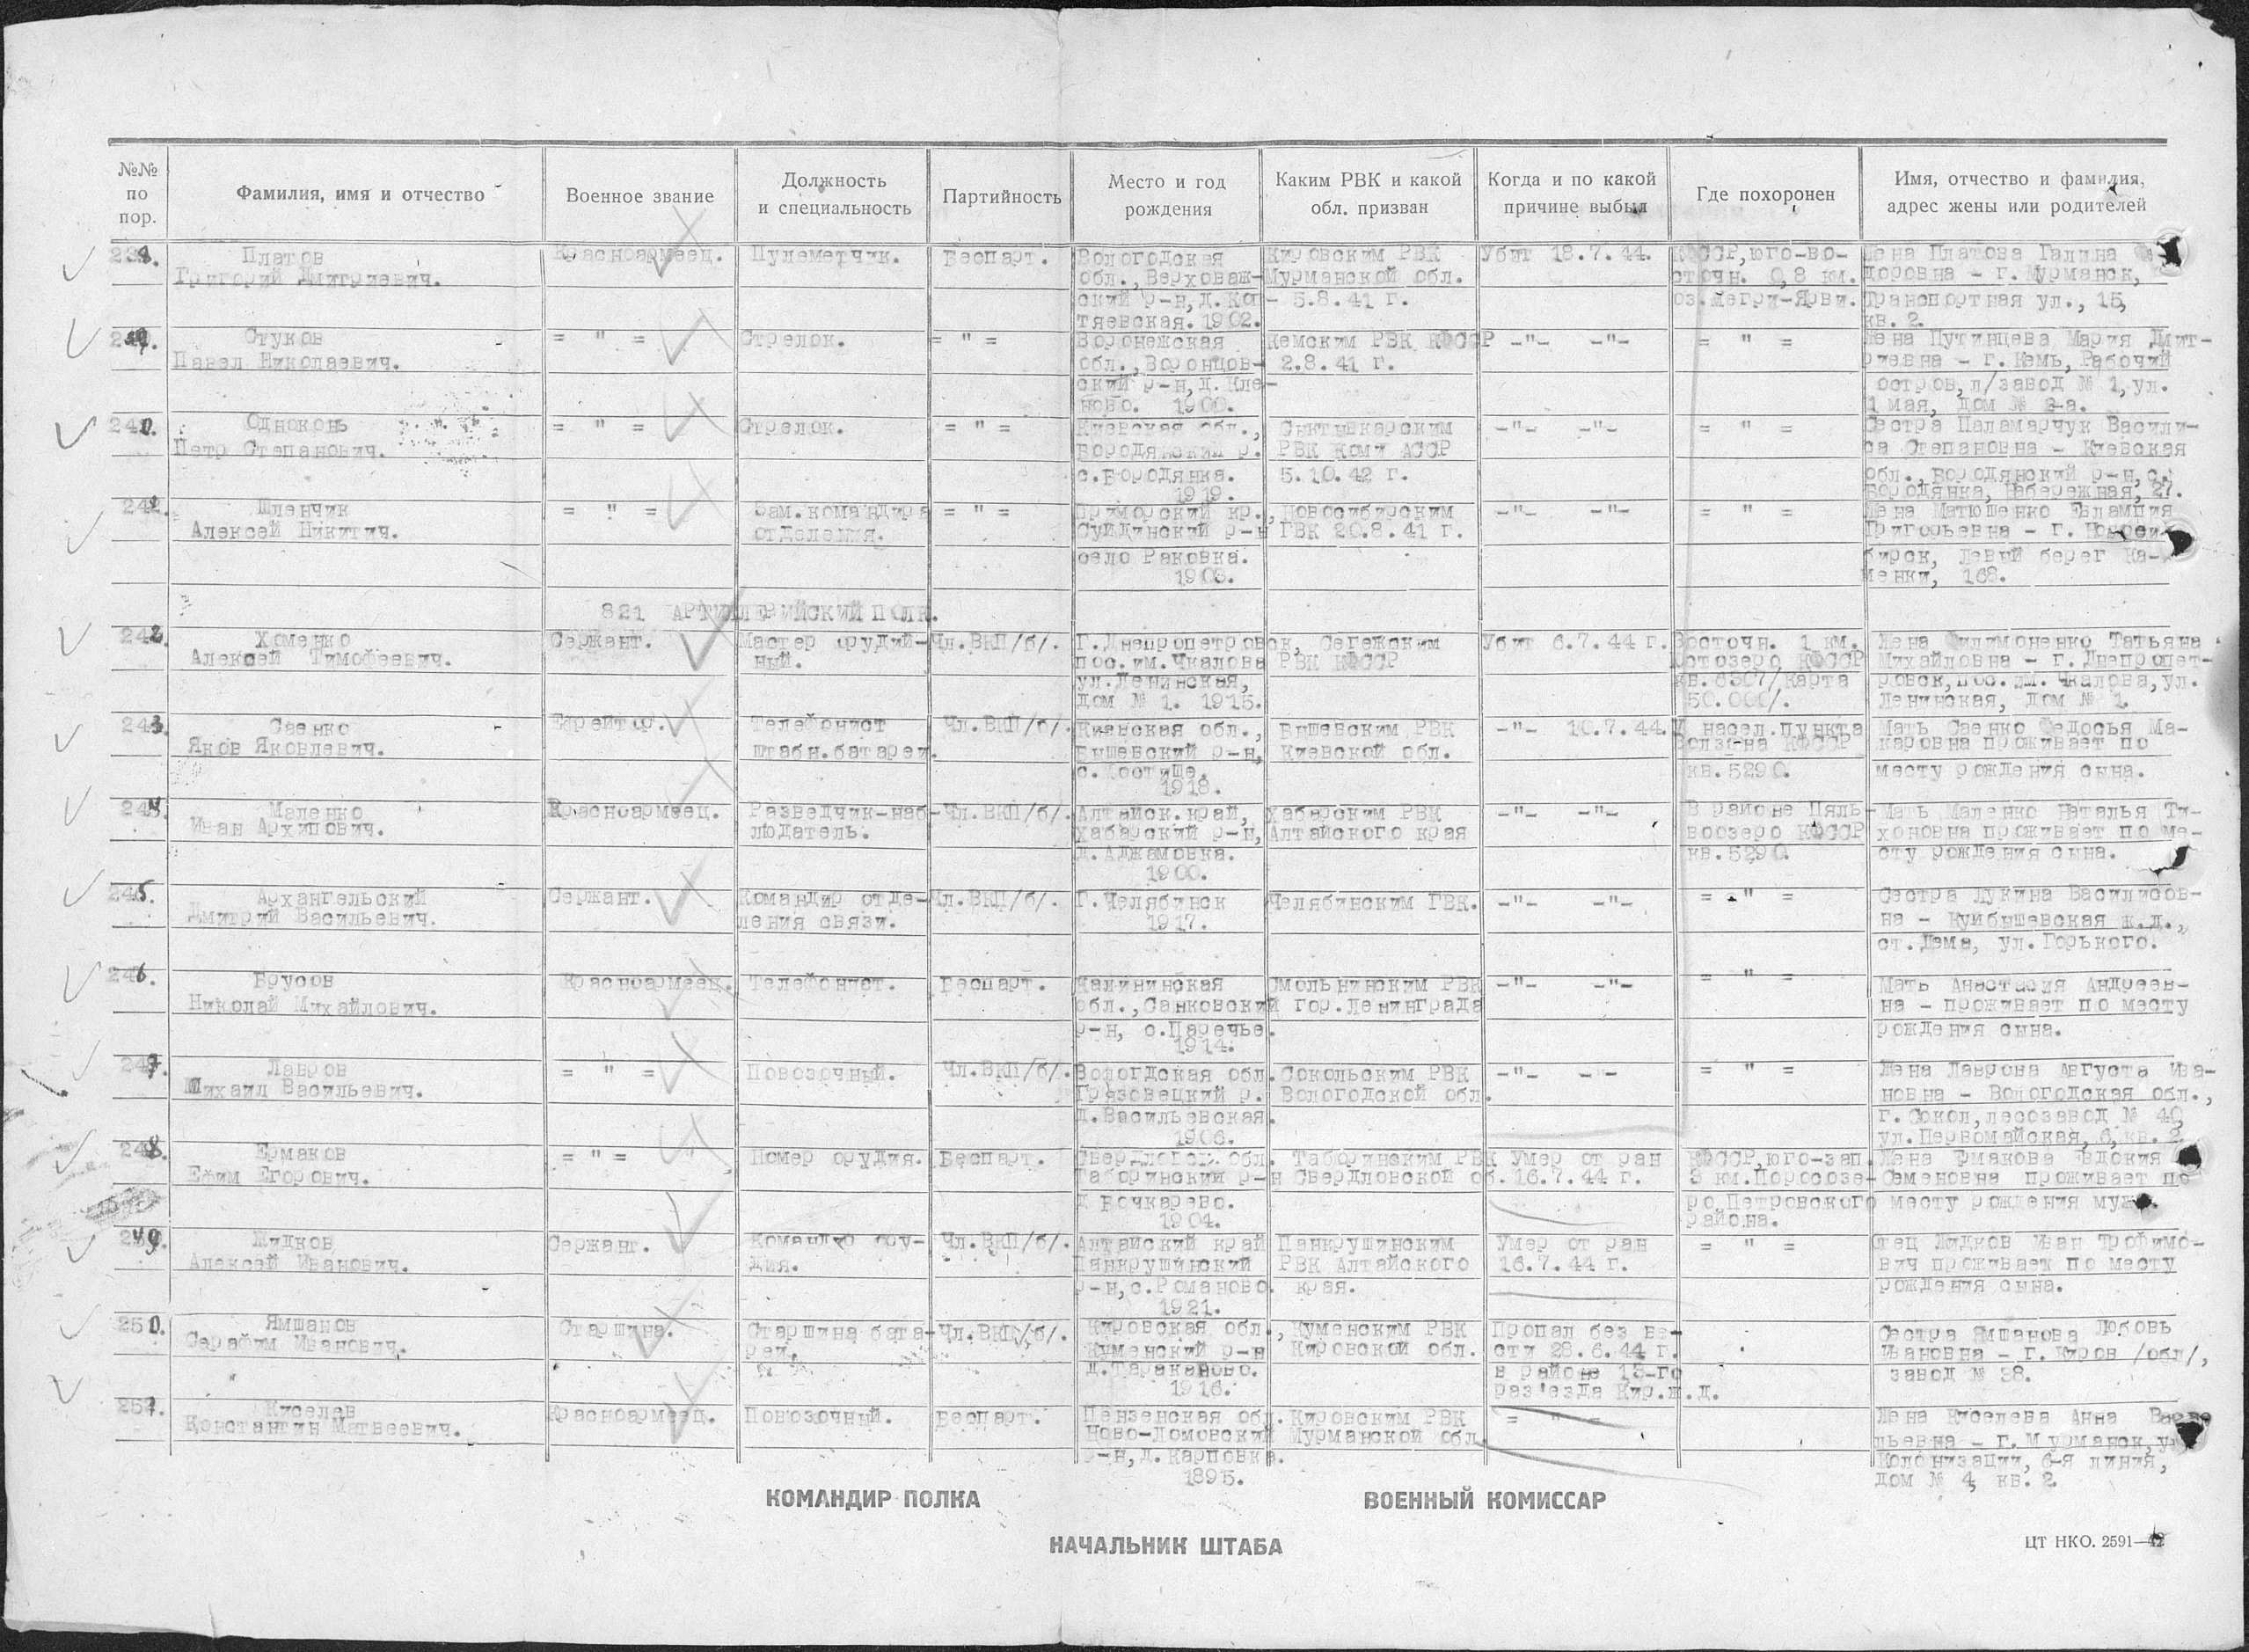 №№ по пор.
Фамилия, имя и отчество
Военное звание
Должность и специальность
Партийность
Место и год рождения
Каким РВК и какой обл. призван
Когда и по какой причине выбыл
Где похоронен
Имя, отчество и фамилия, адрес жены или родителей
Платов Красноармеец. Пулеметчик. Беспарт. Вологодская Кировским РВК Убит 18.7.44. КФССР,юго-во- Жена Платова Галина
Григорий Дмитриевич. обл.,Верховаж- Мурманской обл. сточн. 0,8 км. доровна - г.Мурманск,
ский р-н,д. - 5.8.41 г. оз.Мегри-Ярви. Транспортная ул., 15,
тяевская.1902. кв. 2.
Стуков = " = Стрелок. = " = Воронежская Кемским РВК КФССР -"- -"- = " = Жена Путинцева Мария Дмит-
Павел Николаевич. обл.,Воронцов- 2.8.41 г. риевна - г.Кемь,Рабочий
ский р-н,д. остров,л/завод № 1,ул.
1900. 1 мая, дом №
240. Одноконь = " = Стрелок. = " = Киевская обл., Сыктывкарским -"- -"- = " = Сестра Паламарчук Васили-
Петр Степанович. Бородянский р. РВК Коми АССР са Степановна - Киевская
с.Бородянка. 5.10.42 г. обл.,Бородянский р-н,с.
1919. Бородянка, Набережная, 27.
Шленчик = " = Зам.командира = " = Приморский кр., Новосибирским -"- -"- = " = Жена Матюшенко Евлампия
Алексей Никитич. отделения. р-н ГВК 20.8.41 г. Григорьевна - г. Новоси-
село Раковка. бирск, левый берег Ка-
менки, 168.
821 АРТИЛЛЕРИЙСКИЙ ПОЛК.
242. Хоменко Сержант. Мастер орудий- Чл.ВКП/б/. Г.Днепропетровск, Сегежским Убит 6.7.44 г. Восточн. 1 км. Жена Филимоненко Татьяна
Алексей Тимофеевич. ный. пос.им.Чкалова РВК КФССР КФССР Михайловна - г.Днепропет-
ул.Ленинская, кв.6307/карта ровск,пос.им.Чкалова,ул.
дом № 1. 1915. 50.000/. Ленинская, дом № 1.
243. Саенко Ефрейтор. Телефонист Чл.ВКП/б/. Киевская обл., Вышевским РВК -"- 10.7.44. У насел.пункта Мать Саенко Федосья Ма-
Яков Яковлевич. штабн.батареи. Вышевский р-н, Киевской обл. КФССР каровна проживает по
1918. кв.5290. месту рождения сына.
244. Маленко Красноармеец. Разведчик-наб- Чл.ВКП/б/. Алтайск.край, Хабарским РВК -"- -"- В районе Пяль- Мать Маленко Наталья Ти-
Иван Архипович. людатель. Хабарский р-н, Алтайского края воозеро КФССР хоновна проживает по ме-
д.Аджамовка. кв.5290. сту рождения сына.
1900.
245. Архангельский Сержант. Командир отде- Чл.ВКП/б/. Г.Челябинск Челябинским ГВК. -"- -"- = " = Сестра Лукина
Дмитрий Васильевич. ления связи. 1917. на - Куйбышевская ж.д.,
ст.Дема, ул.Горького.
246. Брусов Красноармеец. Телефонист. Беспарт. Калининская Смольнинским РВК -"- -"- = " = Мать Анастасия Андреев-
Николай Михайлович. обл.,Сонковский гор.Ленинграда на - проживает по месту
р-н, с.Паречье. рождения сына.
1914.
247. Лавров = " = Повозочный. Чл.ВКП/б/. Вологдская обл. Сокольским РВК -"- -"- = " = Жена Лаврова Августа Ива-
Михаил Васильевич. Грязовецкий р. Вологодской обл. новна - Вологодская обл.,
д.Васильевская. г.Сокол,лесозавод № 40,
1906. ул.Первомайская,6,кв.
248. Ермаков = " = Номер орудия. Беспарт. Свердловск.обл. Таборинским РВК Умер от ран КФССР,юго-зап. Жена Ермакова Евдокия
Ефим Егорович. Таборинский р-н Свердловской об. 16.7.44 г. 3 км.Поросозе- Семеновна проживает по
д Бочкарево. ро Петровского месту рождения мужа.
1904. района.
249. Жидков Сержант. Командир ору- Чл.ВКП/б/. Алтайский край Панкрушинским Умер от ран = " = Отец Жидков Иван Трофимо-
Алексей Иванович. дия. Панкрушинский РВК Алтайского 16.7.44 г. вич проживает по месту
р-н,с.Романово. края. рождения сына.
1921.
250. Ямшанов Старшина. Старшина бата- Чл.ВКП/б/. Кировская обл., Куменским РВК Пропал без ве- Сестра Ямшанова Любовь
Серафим Иванович. реи. Куменский р-н Кировской обл. сти 28.6.44 г. Ивановна - г.Киров /обл/,
д.Тараканово. в районе 13-го завод № 38.
1916. раз'езда Кир.ж.д.
251. Киселев Красноармеец. Повозочный. Беспарт. Пензенская обл. Кировским РВК = " = Жена Киселева Анна
Константин Матвеевич. Ново-Ломовский Мурманской обл. льевна - г.Мурманск,ул.
р-н,д.Карповка. Колонизации, 6-я линия,
1895. дом № 4, кв. 2.
КОМАНДИР ПОЛКА
ВОЕННЫЙ КОМИССАР
НАЧАЛЬНИК ШТАБА
ЦТ НКО. 2591—42